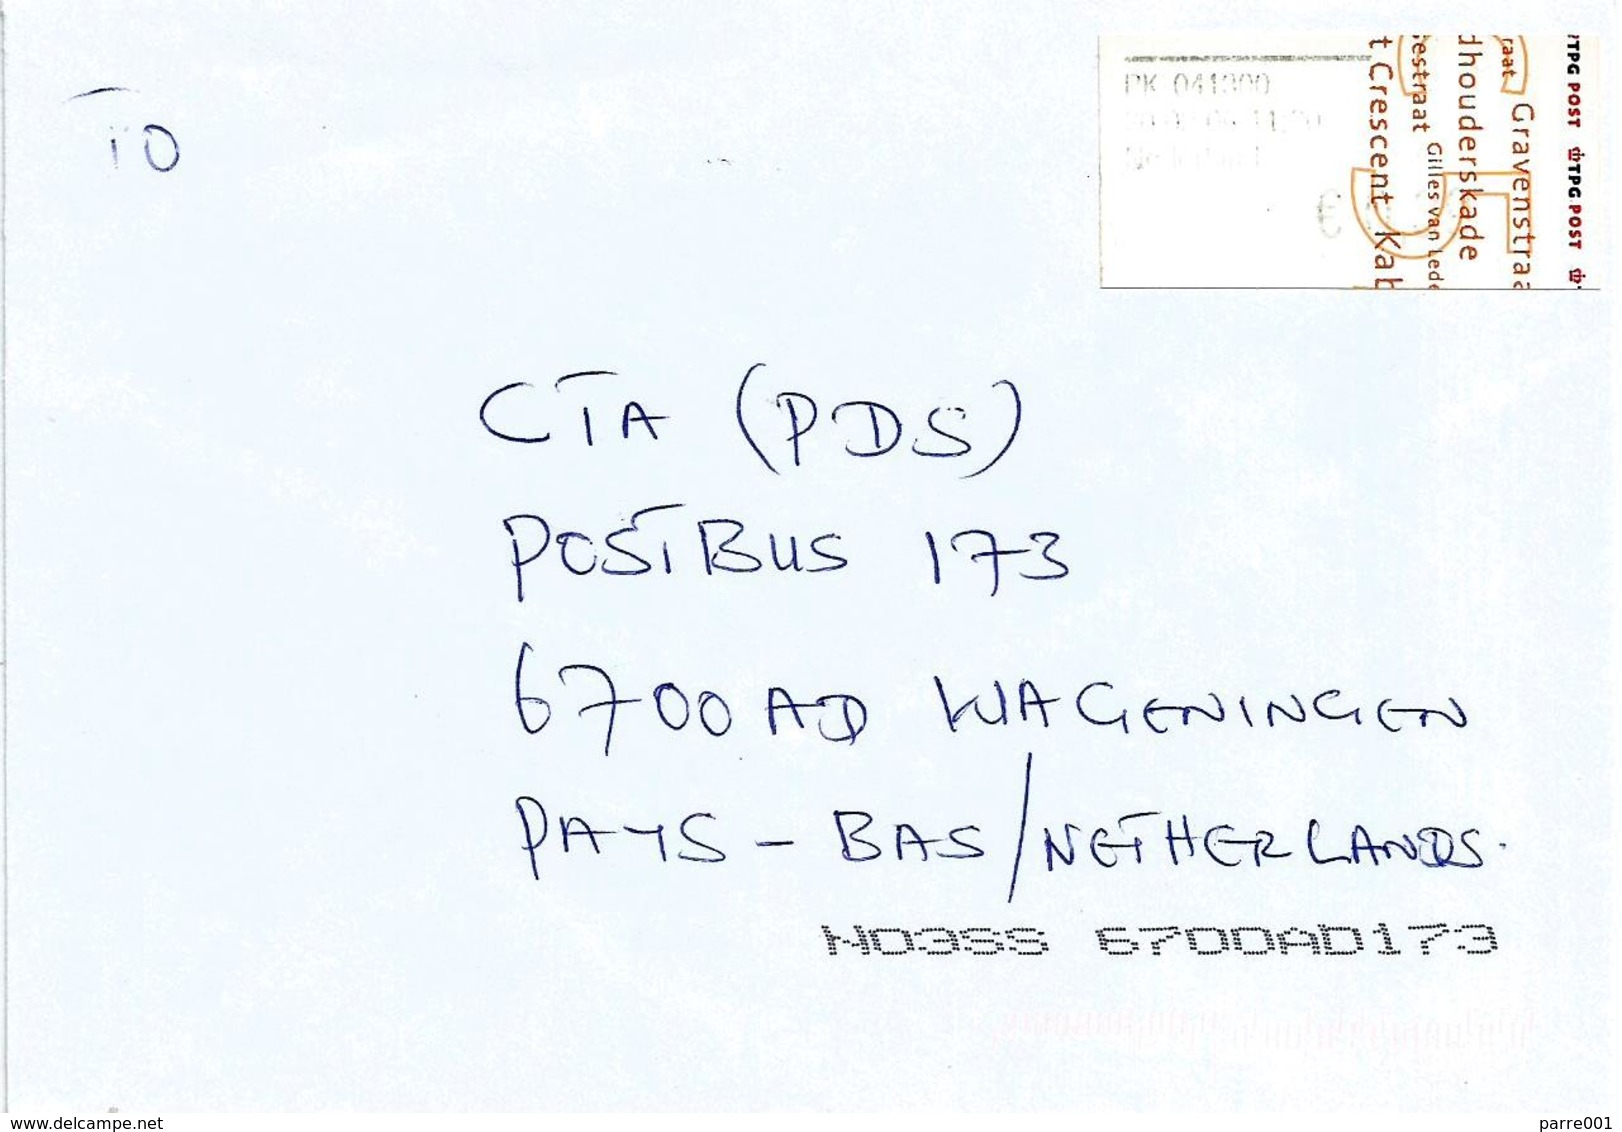 TO
PK 041300
€
TPG POST TPG POST
raat Gravenstraa
dhouderskade
estraat Gilles van Lede
t Crescent Kab
CTA (PDS)
POSTBUS 173
6700 AD WAGENINGEN
PAYS-BAS/NETHERLANDS.
NO3SS 6700AD173
delcampe.net
parre001